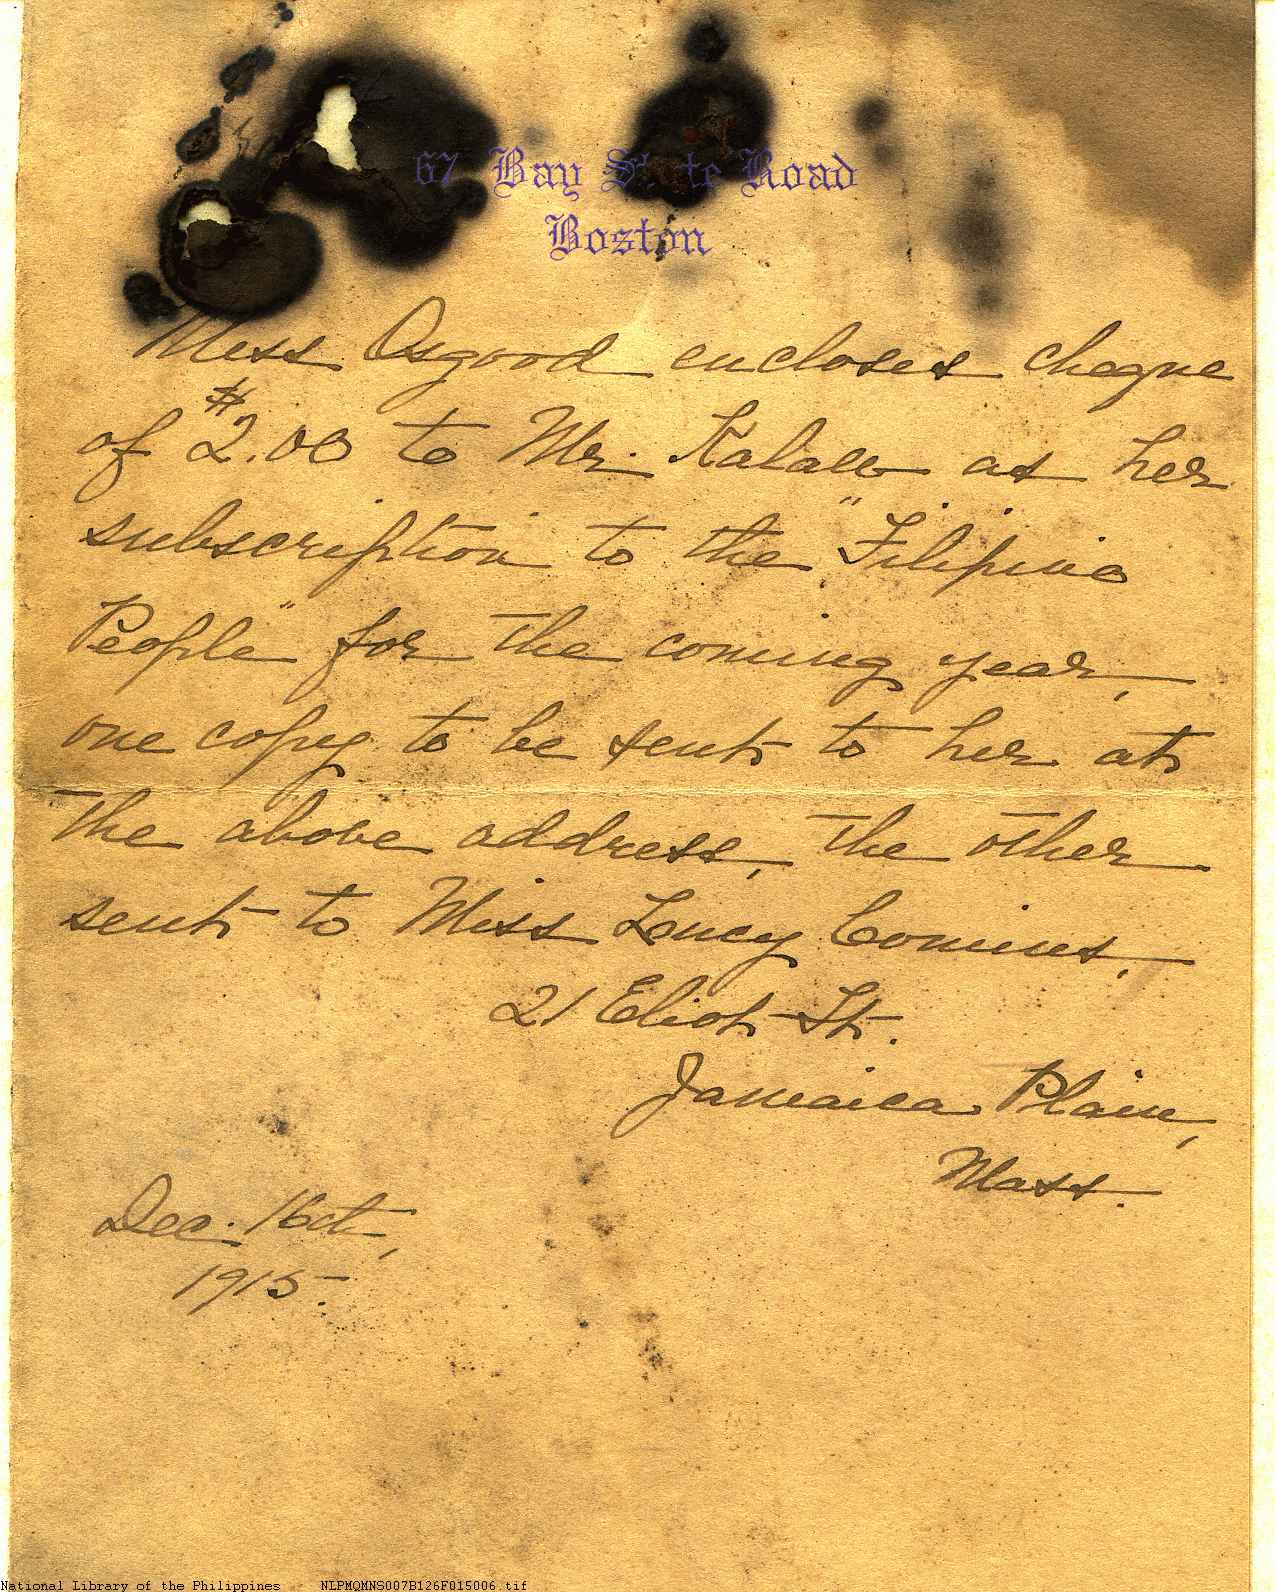 67 Bay State Road
Boston
Miss Osgood encloses cheque
of $2.00 to Mr. Kalaw as her
subscription to the "Filipino
People" for the coming year,
one copy to be sent to her at
the above address, the other
sent to Miss Lucy Comins,
21 Eliot St.
Jamaica Plain,
Mass.
Dec. 16th,
1915.
National Library of the Philippines NLPMQMNS007B126F015006.tif